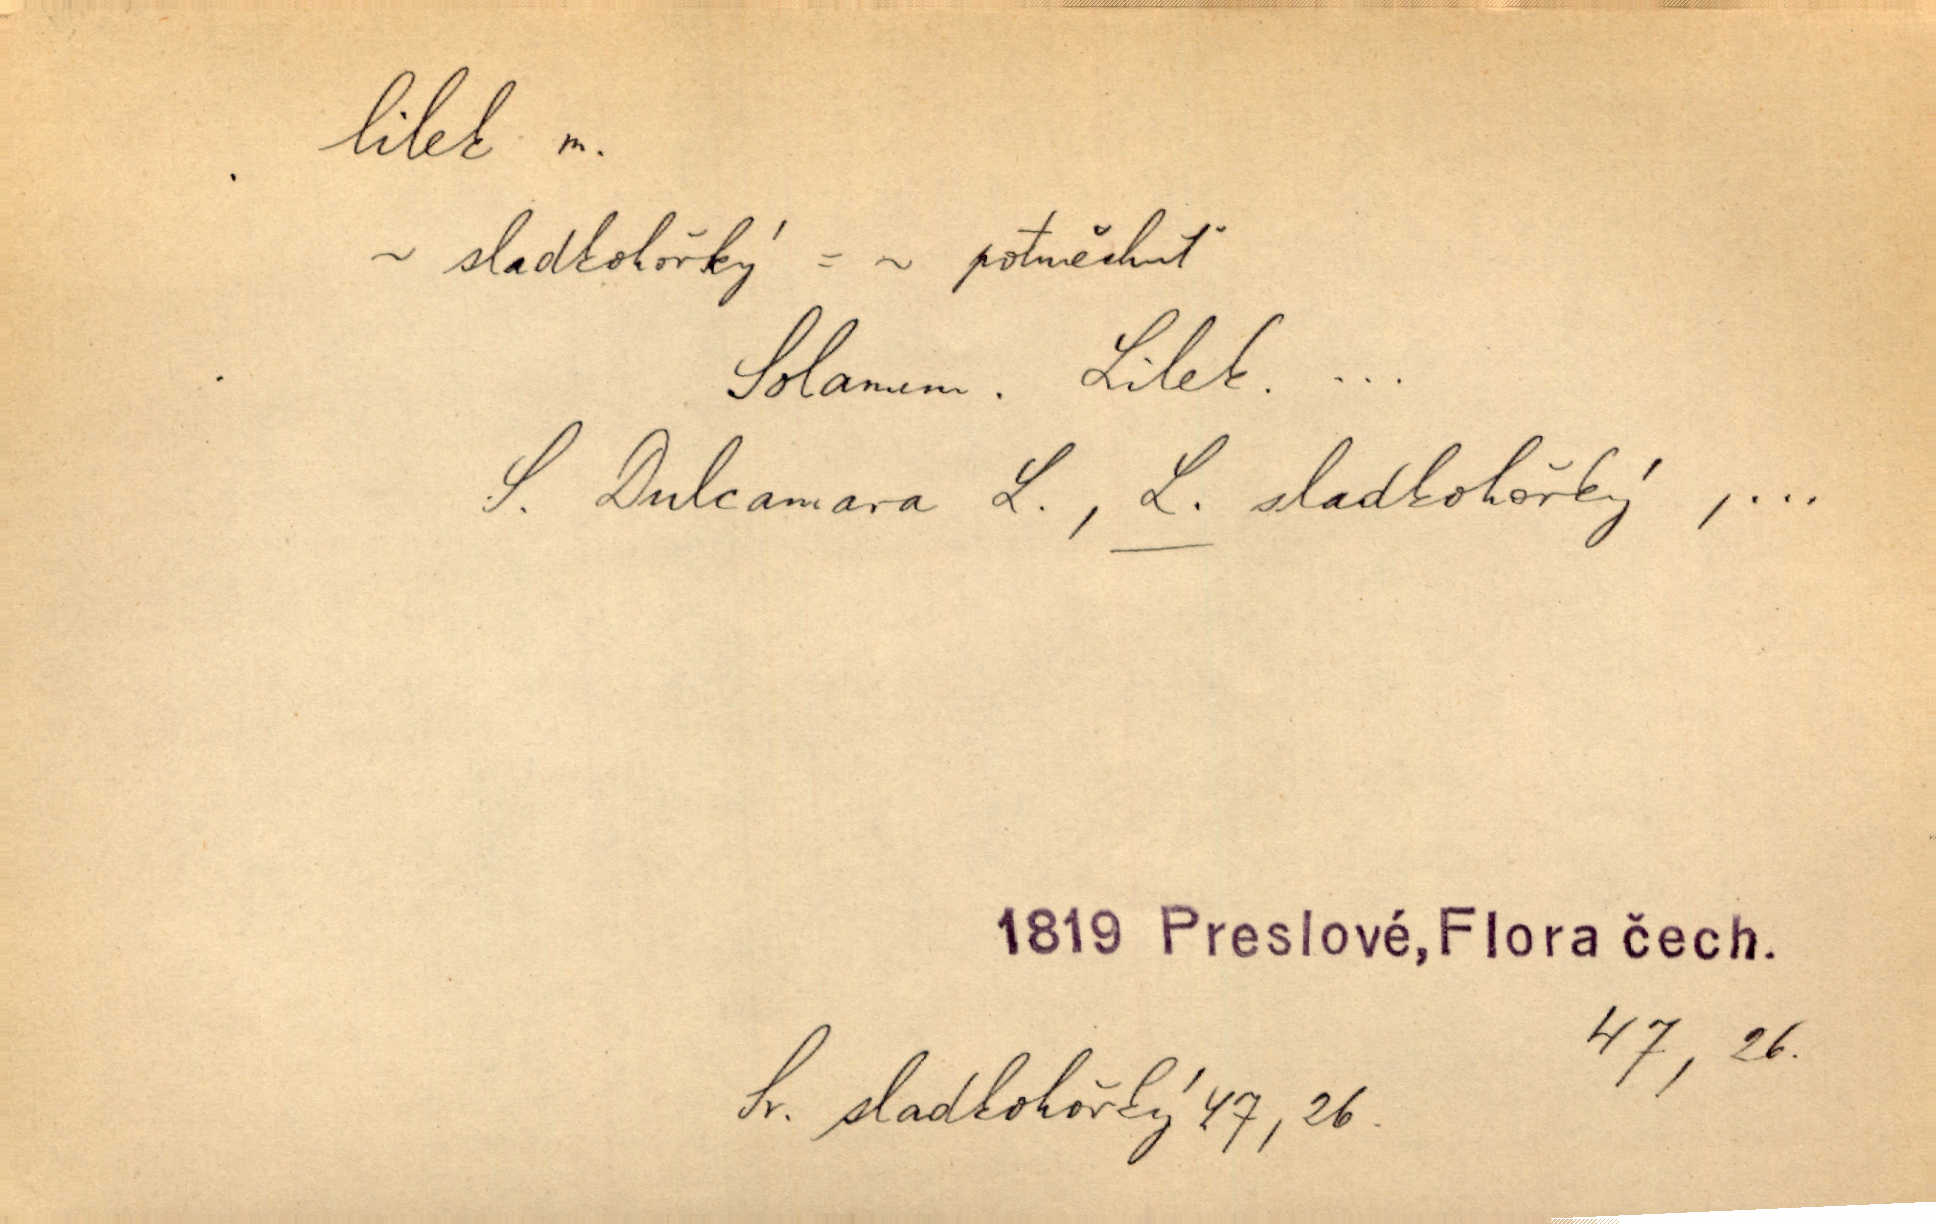 lilek m.
~ sladkohořký = ~ potměchuť
Solanum. Lilek. ...
S. Dulcamara L., L. sladkohořký, ...
1819 Preslové, Flora čech.
47, 26.
Sr. sladkohořký 47, 26.